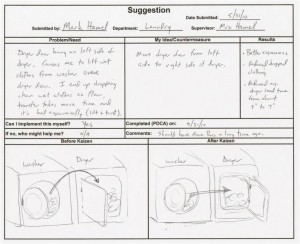 Suggestion
Date Submitted: 5/31/10
Submitted by: Mark Hamel Department: Laundry Supervisor: Mrs. Hamel
Problem/Need
My Idea/Countermeasure
Results
Dryer door hung on left side of
dryer. Causes me to lift wet
clothes from washer over
dryer door. I end up dropping
clean wet clothes on floor,
transfer takes more time and
it's bad ergonomically (lift + twist).
Move dryer door from left
side to right side of dryer.
- Better ergonomics
- Reduced dropped
clothing
- Reduced
dryer load
time from
about
Can I implement this myself? Yes
Completed (PDCA) on:
If no, who might help me? n/a
Comments: Should have done this a long time ago.
Before Kaizen
After Kaizen
Washer
Dryer
Washer
Dryer